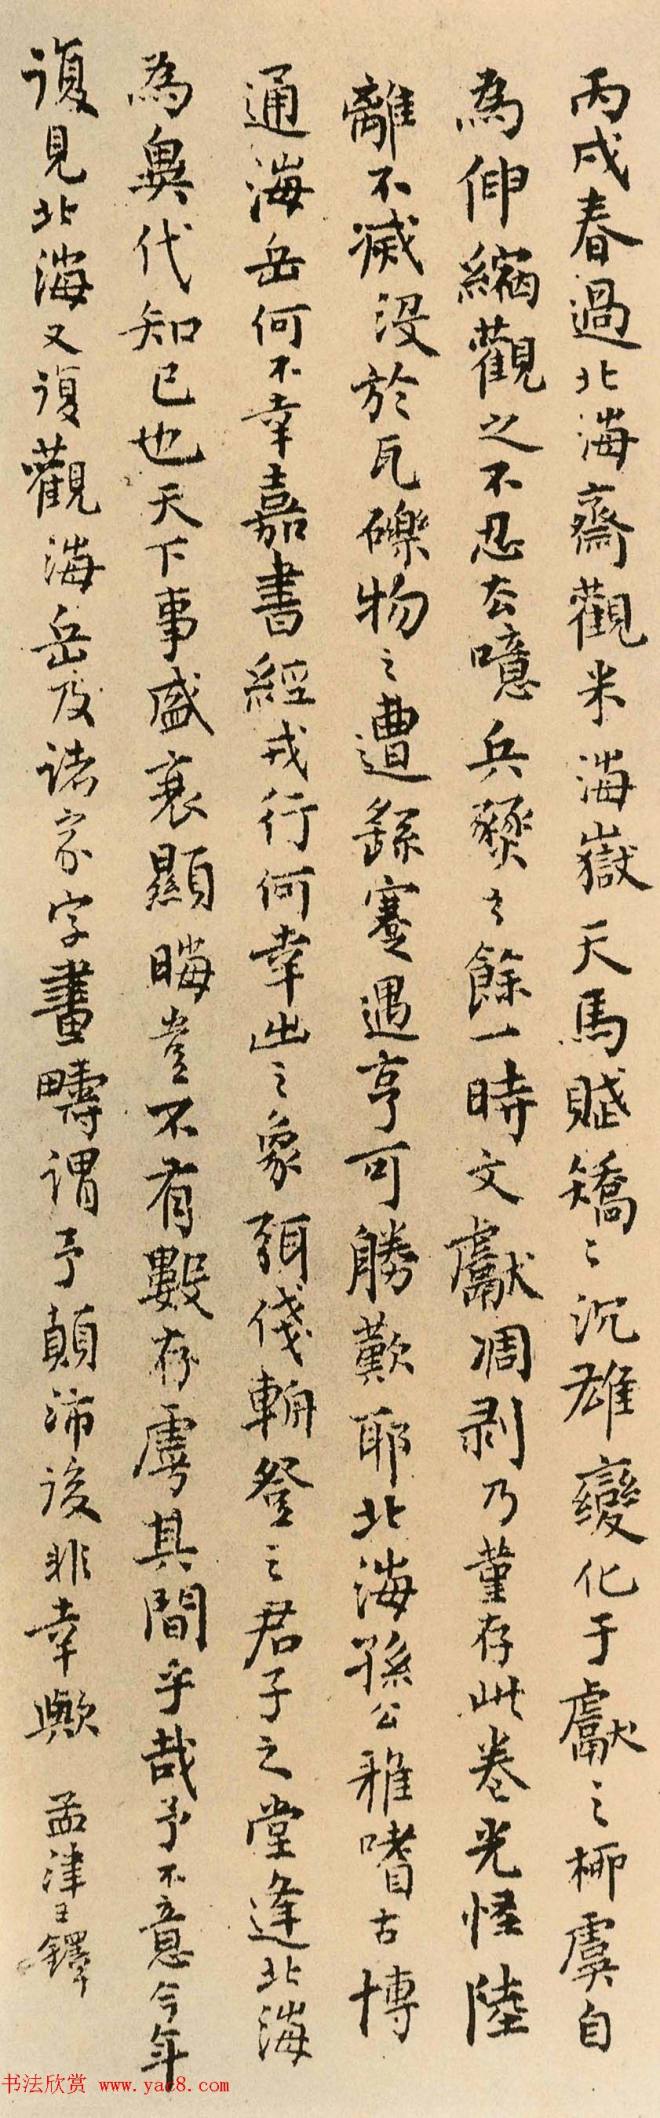 丙戌春過北海齋觀米海嶽天馬賦矯〻沉雄變化于獻之柳虞自
為伸縮觀之不忍去噫兵燹之餘一時文獻凋剥乃堇存此卷光怪陸
離不滅没於瓦礫物之遭繇蹇遇亨可勝歎耶北海孫公雅嗜古博
通海岳何不幸嘉書經戎行何幸出之象弭俴輈登之君子之堂逢北海
為異代知己也天下事盛衰顯晦豈不有數存虖其間乎哉予不意今年
復見北海又復觀海岳及諸家字畫疇謂予顛沛後非幸歟 孟津王鐸
书法欣赏 www.yac8.com